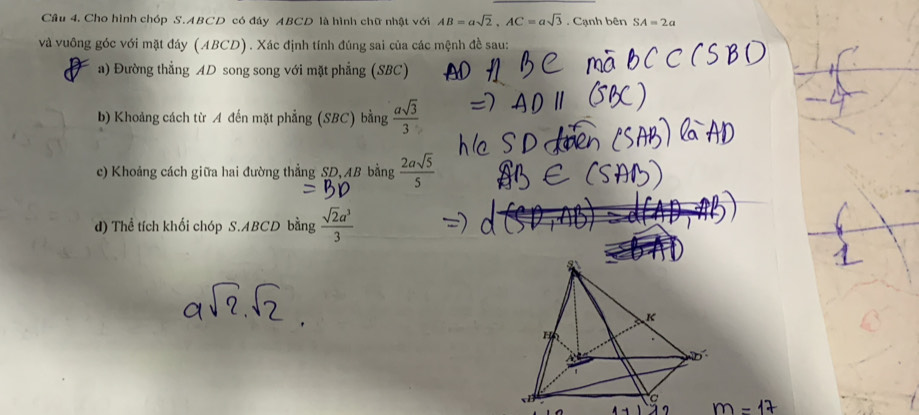 Câu 4. Cho hình chóp S.ABCD có đáy ABCD là hình chữ nhật với AB = a√2 , AC = a√3 . Cạnh bên SA = 2a
và vuông góc với mặt đáy (ABCD) . Xác định tính đúng sai của các mệnh đề sau:
a) Đường thẳng AD song song với mặt phẳng (SBC)
AD // BC mà BC C (SBD
=) AD // (SBC)
b) Khoảng cách từ A đến mặt phẳng (SBC) bằng a√3/3
h/c SD trên (SAB) là AD
c) Khoảng cách giữa hai đường thẳng SD, AB bằng 2a√5/5
= BD
AB ∈ (SAB)
d) Thể tích khối chóp S.ABCD bằng √2a³/3
=) d(SD, AB) = d(AD, AB)
= BAD
a√2.√2 .
S
K
H
A
D
B
C
m = 17
-4
1